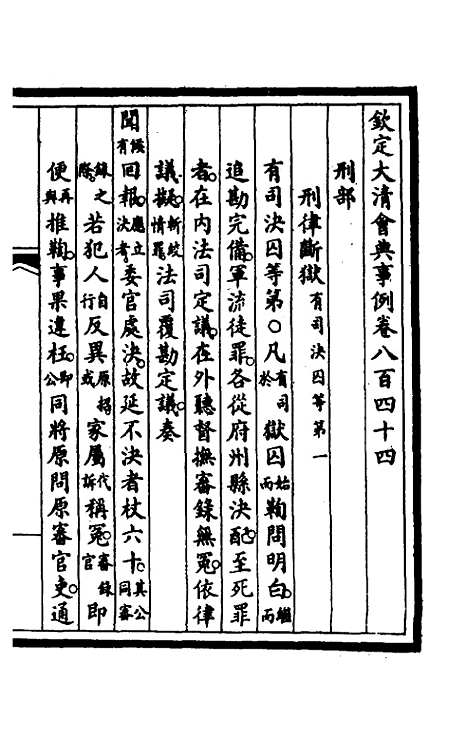 欽定大清會典事例卷八百四十四
刑部
刑律斷獄有司決囚等第一
有司決囚等第○凡有司於獄囚始而鞫問明白繼而
追勘完備軍流徒罪各從府州縣決配至死罪
者在內法司定議在外聽督撫審錄無冤依律
議擬斬絞情罪法司覆勘定議奏
聞候有回報應立決者委官處決故延不決者杖六十其公同審
錄之際若犯人自行反異原招或家屬代訴稱冤審錄官即
便再與推鞫事果違枉即公同將原問原審官吏通